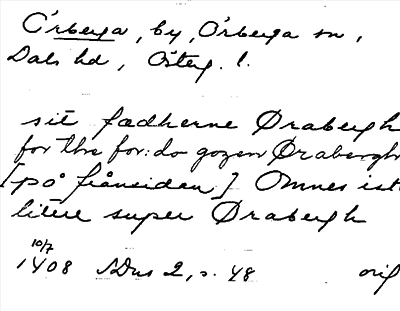 Örberga, by, Örberga sn,
Dals hd, Österg. l.
sit fædherne Ørabergh
for thr for:do gozen Ørabergh
[på frånsidan] Omnes ist
litere super Ørabergh
10/7
1408 SDns 2, s. 48 orig